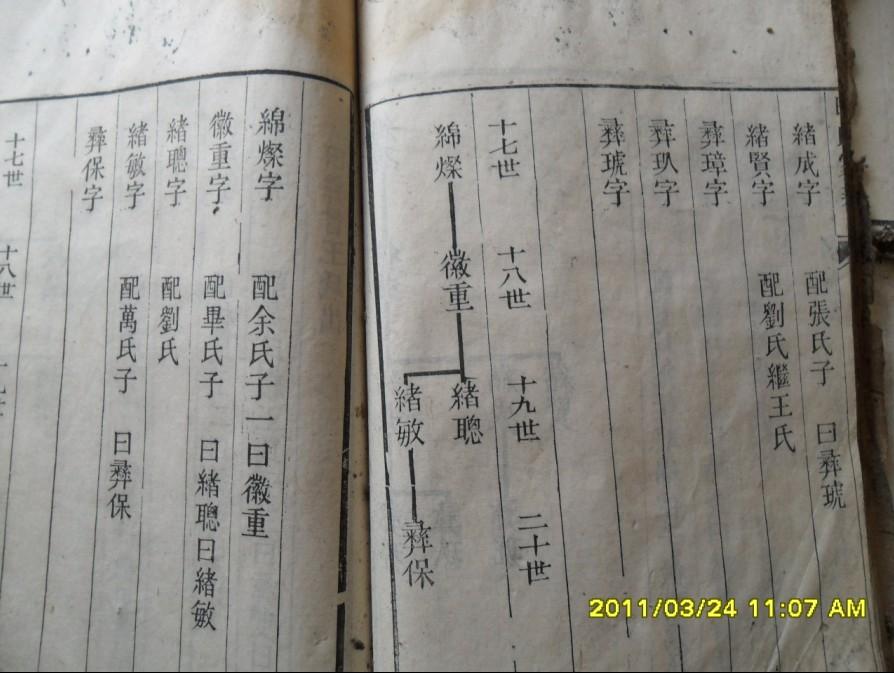 緒成字 配張氏子 曰彝琥
緒賢字 配劉氏繼王氏
彝璋字
彝玐字
彝琥字
十七世 十八世 十九世 二十世
綿燦 徽重 緒聰
緒敏 彝保
綿燦字 配余氏子一曰徽重
徽重字 配畢氏子 曰緒聰曰緒敏
緒聰字 配劉氏
緒敏字 配萬氏子 曰彝保
彝保字
十七世 十八世
2011/03/24 11:07 AM